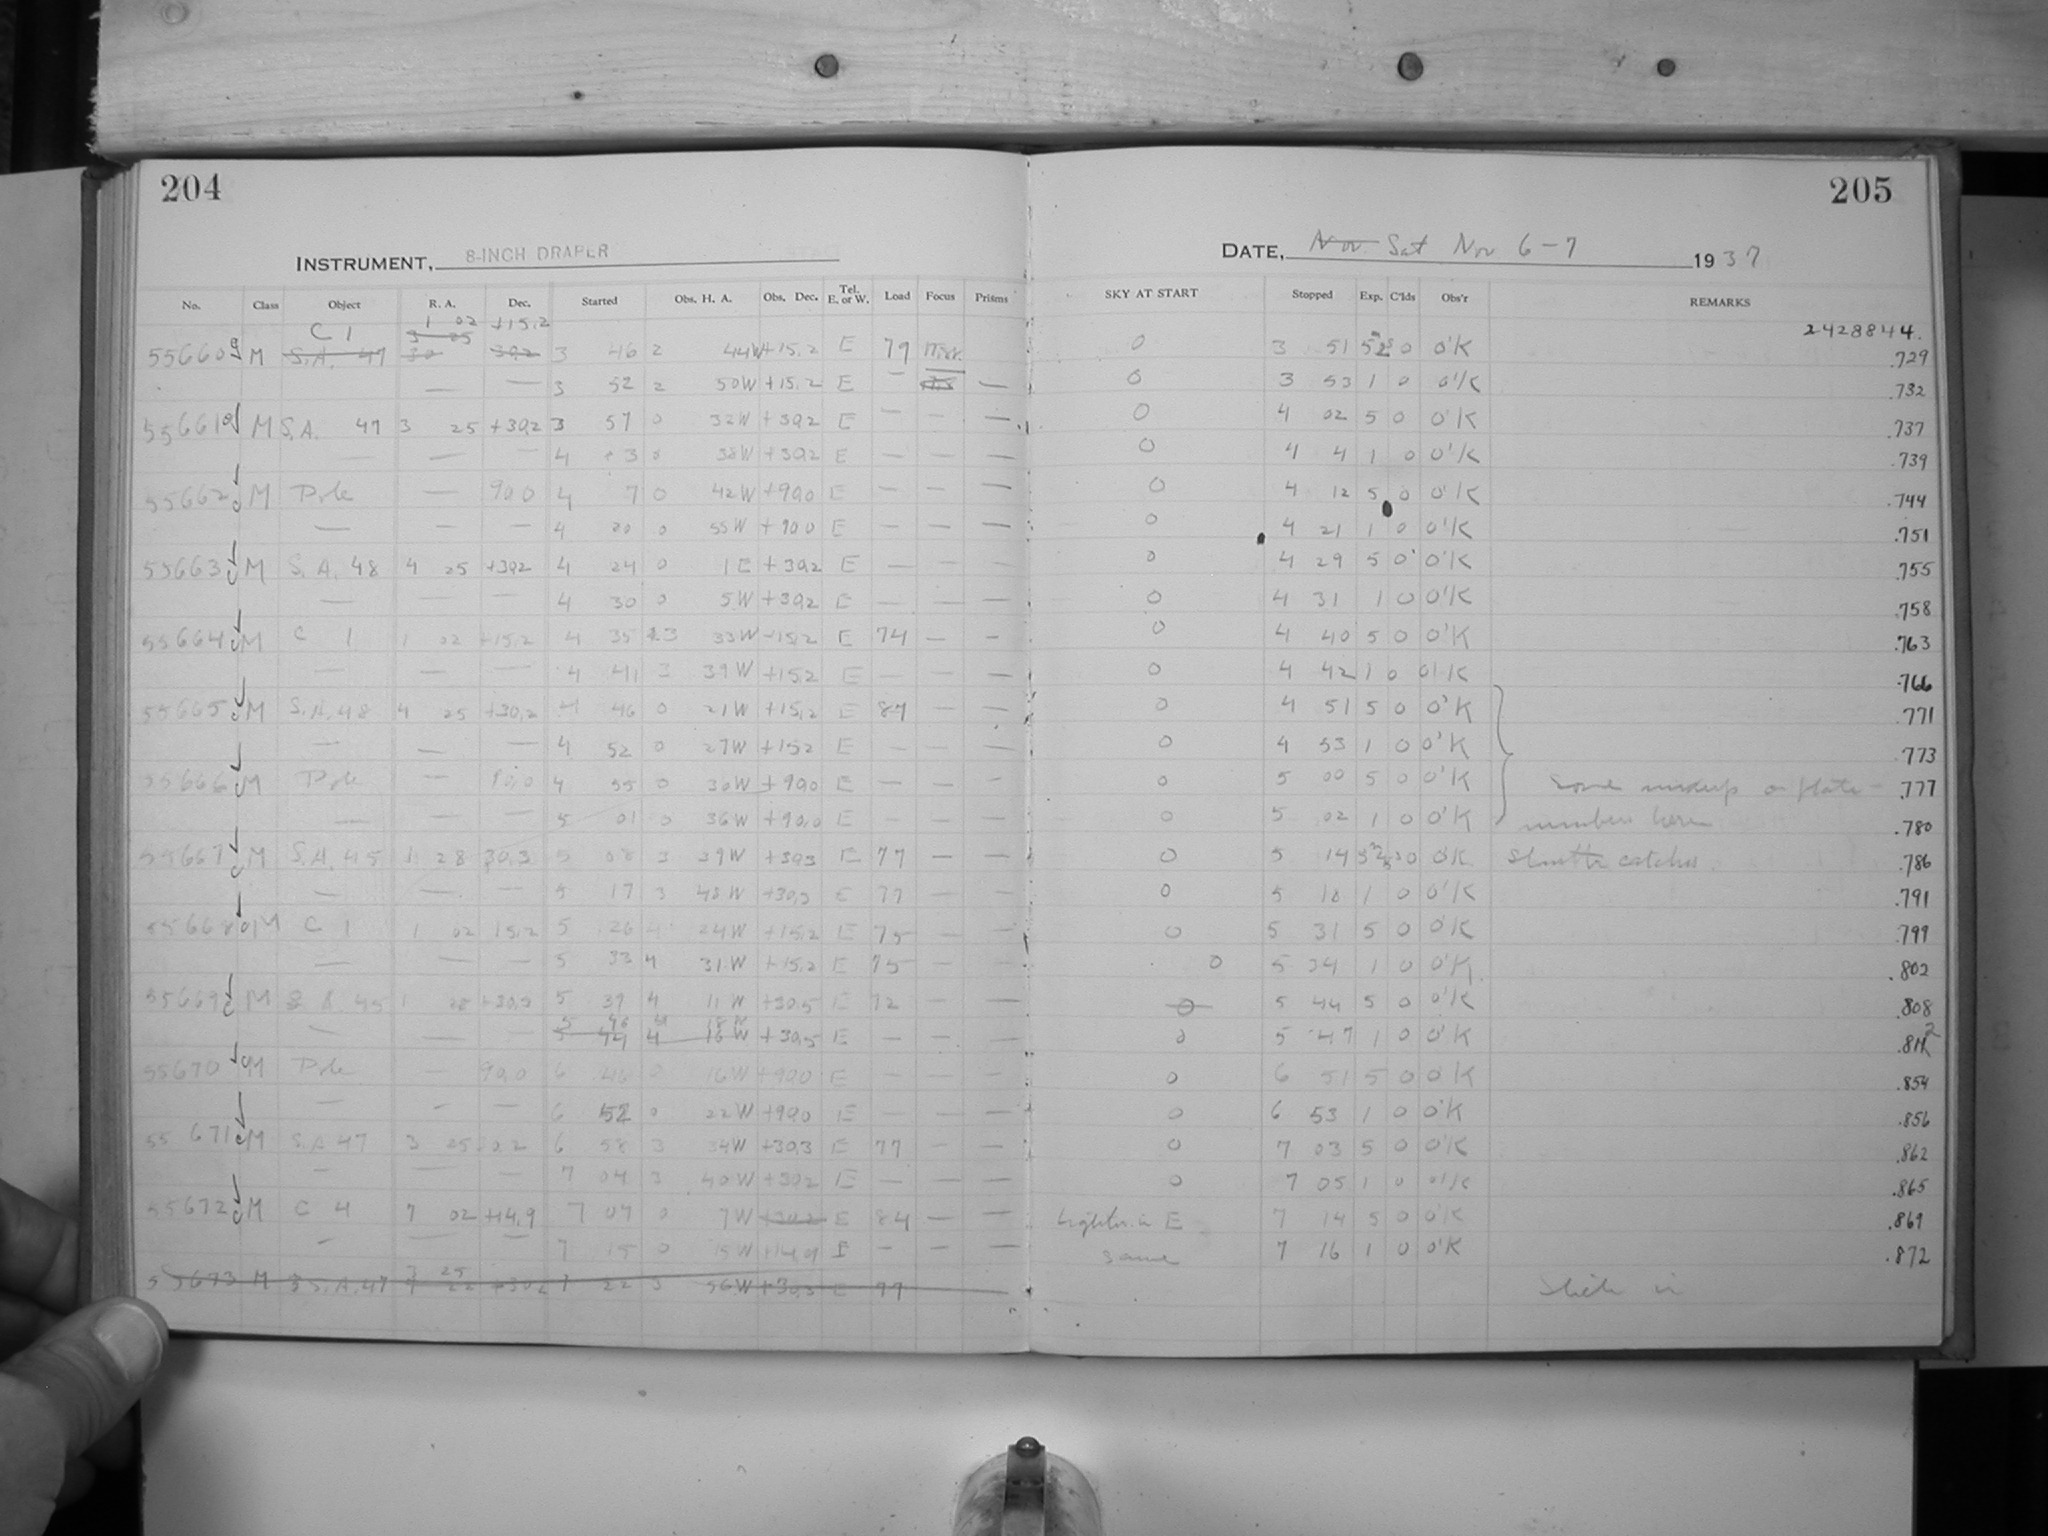 204
205
INSTRUMENT, 8-INCH DRAPER
DATE, Nov Sat Nov 6-7 1937
No. Class Object R. A. Dec. Started Obs. H. A. Obs. Dec. Tel. E. or W. Load Focus Prisms SKY AT START Stopped Exp. C'lds Obs'r REMARKS
C 1 1 02 +15.2 2428844.
55660 M S.A. 47 3 25 30 30.2 3 46 2 44W +15.2 E 79 0 3 51 5 0 O'K .729
— — 3 52 2 50W +15.2 E — — 0 3 53 1 0 O'K .732
55661 M S.A. 47 3 25 +30.2 3 57 0 32W +30.2 E — — — 0 4 02 5 0 O'K .737
— — — 4 03 0 38W +30.2 E — — — 0 4 4 1 0 O'K .739
55662 M Pole — 90.0 4 7 0 42W +90.0 E — — — 0 4 12 5 0 O'K .744
— — — 4 20 0 55W +90.0 E — — — 0 4 21 1 0 O'K .751
55663 M S.A. 48 4 25 +30.2 4 24 0 1E +30.2 E — — — 0 4 29 5 0 O'K .755
— — — 4 30 0 5W +30.2 E — — — 0 4 31 1 0 O'K .758
55664 M C 1 1 02 +15.2 4 35 3 33W +15.2 E 74 — — 0 4 40 5 0 O'K .763
— — — 4 41 3 39W +15.2 E — — — 0 4 42 1 0 O'K .766
55665 M S.A. 48 4 25 +30.2 4 46 0 21W +15.2 E 87 — — 0 4 51 5 0 O'K .771
— — — 4 52 0 27W +15.2 E — — — 0 4 53 1 0 O'K .773
55666 M Pole — 90.0 4 55 0 30W +90.0 E — — — 0 5 00 5 0 O'K Some mixup on plate .777
— — — 5 01 0 36W +90.0 E — — — 0 5 02 1 0 O'K numbers here .780
55667 M S.A. 45 1 28 30.3 5 08 3 39W +30.3 E 77 — — 0 5 14 5 0 O'K Shutter catches .786
— — — 5 17 3 48W +30.3 E 77 — — 0 5 18 1 0 O'K .791
55668 M C 1 1 02 15.2 5 26 4 24W +15.2 E 75 — — 0 5 31 5 0 O'K .799
— — — 5 33 4 31W +15.2 E 75 — — 0 5 34 1 0 O'K .802
55669 M S.A. 45 1 28 +30.3 5 39 4 11W +30.5 E 72 — — 0 5 44 5 0 O'K .808
5 46 4 18W
— — — 5 44 4 16W +30.5 E — — — 0 5 47 1 0 O'K .812
55670 M Pole — 90.0 6 46 0 16W +90.0 E — — — 0 6 51 5 0 O'K .854
— — — 6 52 0 22W +90.0 E — — — 0 6 53 1 0 O'K .856
55671 M S.A. 47 3 25 30.2 6 58 3 34W +30.3 E 77 — — 0 7 03 5 0 O'K .862
— — — 7 04 3 40W +30.2 E — — — 0 7 05 1 0 O'K .865
55672 M C 4 7 02 +14.9 7 09 0 9W +30.2 E 84 — — E 7 14 5 0 O'K .869
— — — 7 15 0 15W +14.9 E — — — Same 7 16 1 0 O'K .872
3 25
55673 M S.A. 47 7 22 +30.2 7 22 3 56W +30.3 E 77 Slide in